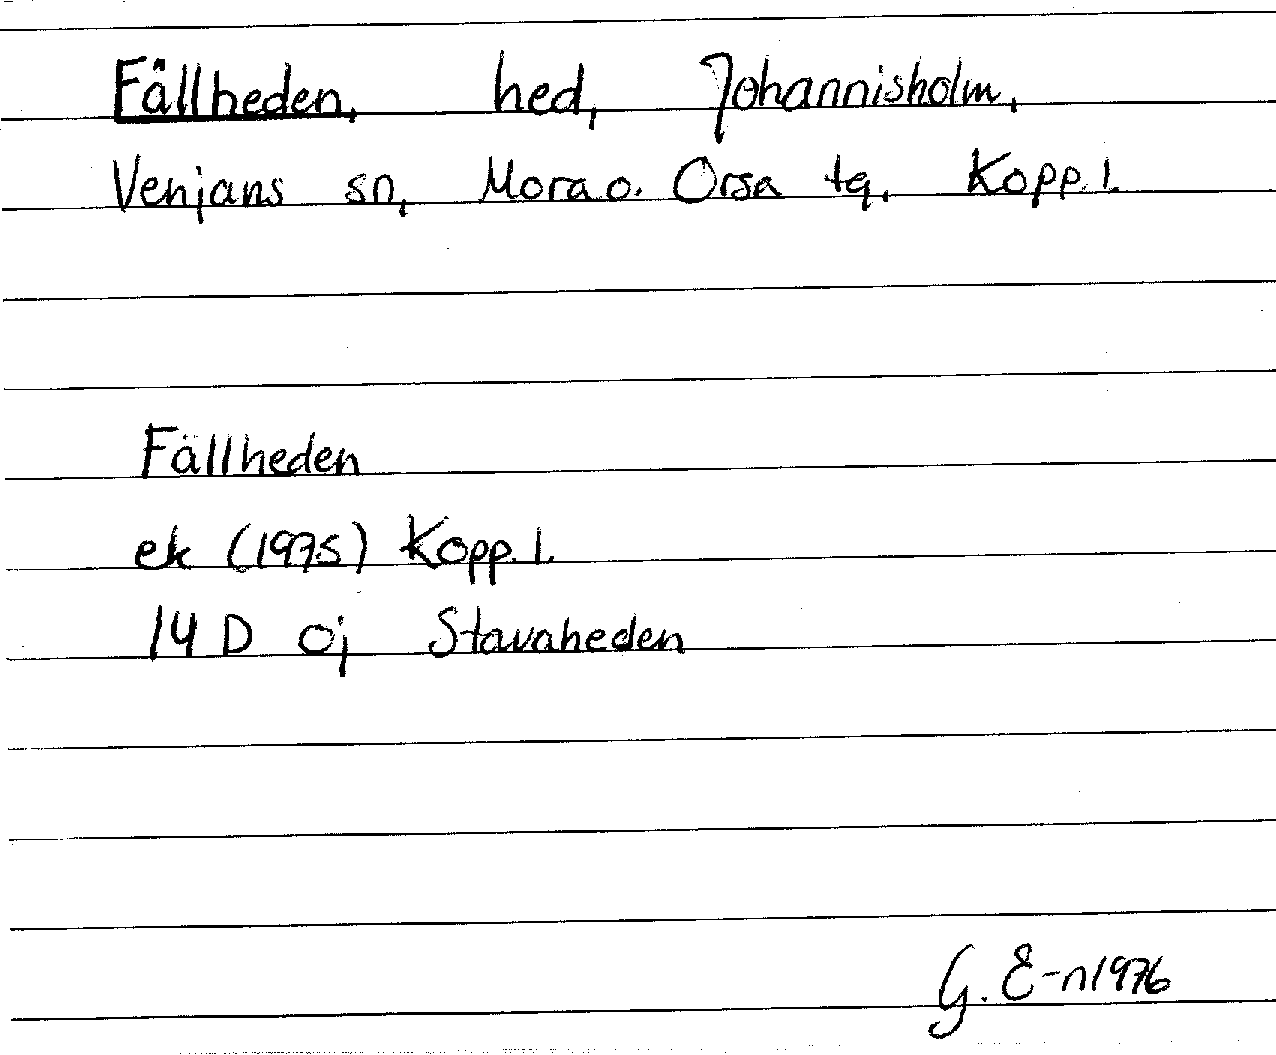 Fällheden, hed, Johannisholm,
Venjans sn, Mora o. Orsa tg, Kopp. l.
Fällheden
ek (1975) Kopp. l.
14 D 0j Stavaheden
G. E-n 1976